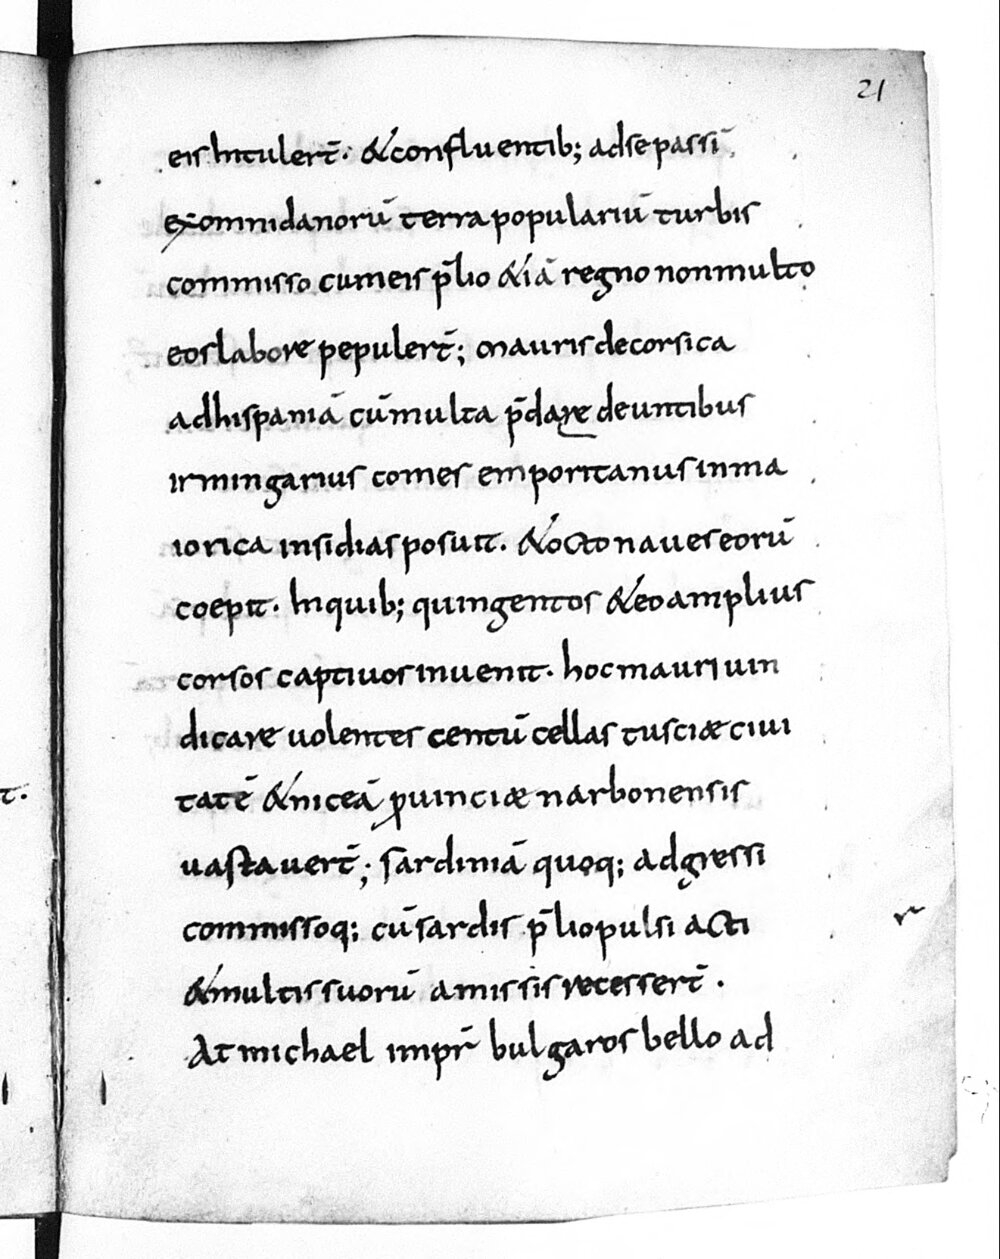 21
eis intulert̄. &confluentib; adsepassī
exomnidanorū terrapopulariū turbis
commisso cumeis p̄lio &iā regnononmulto
eoslabore pepulert̄; maurisdecorsica
adhispaniā cūmulta p̄daredeuntibus
irmingarius comes emporitanusinma
iorica insidiasposuit. &octonaueseorū
coepit. Inquib; quingentos &eoamplius
corsos captiuosinuenit. hocmauriuin
dicare uolentes centū cellas tusciæciui
tatē &niceā ꝓuinciæ narbonensis
uastauert̄; sardiniā quoq; adgressi
commissoq; cūsardis p̄liopulsi acti
&multissuorū amissisrecessert̄.
At michael impr̄ bulgarosbello ad
t.
r